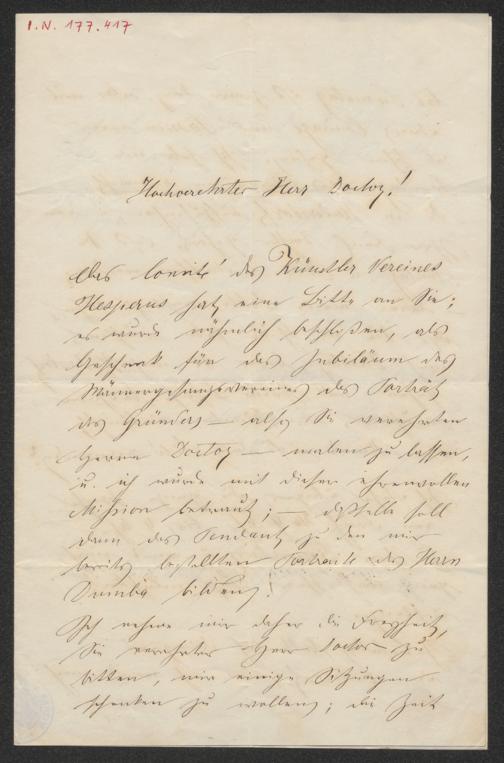 I.N. 177.417
Hochverehrter Herr Doctor!
Das Comité des Künstler Vereines
Hesperus hat eine Bitte an Sie;
es wurde nähmlich beschloßen, als
Geschenk für das Jubiläum des
Männergesangsvereines das Porträt
des Gründers — also Sie verehrten
Herrn Doctor — malen zu lassen,
u. ich wurde mit dieser ehrenvollen
Mission betraut; — dasselbe soll
dann das Pendant zu den mir
bereits bestellten Portraite des Herrn
Dumba bilden!
Ich nehme mir daher die Freyheit,
Sie verehrter Herr Doctor zu
bitten, mir einige Sitzungen
schenken zu wollen; die Zeit